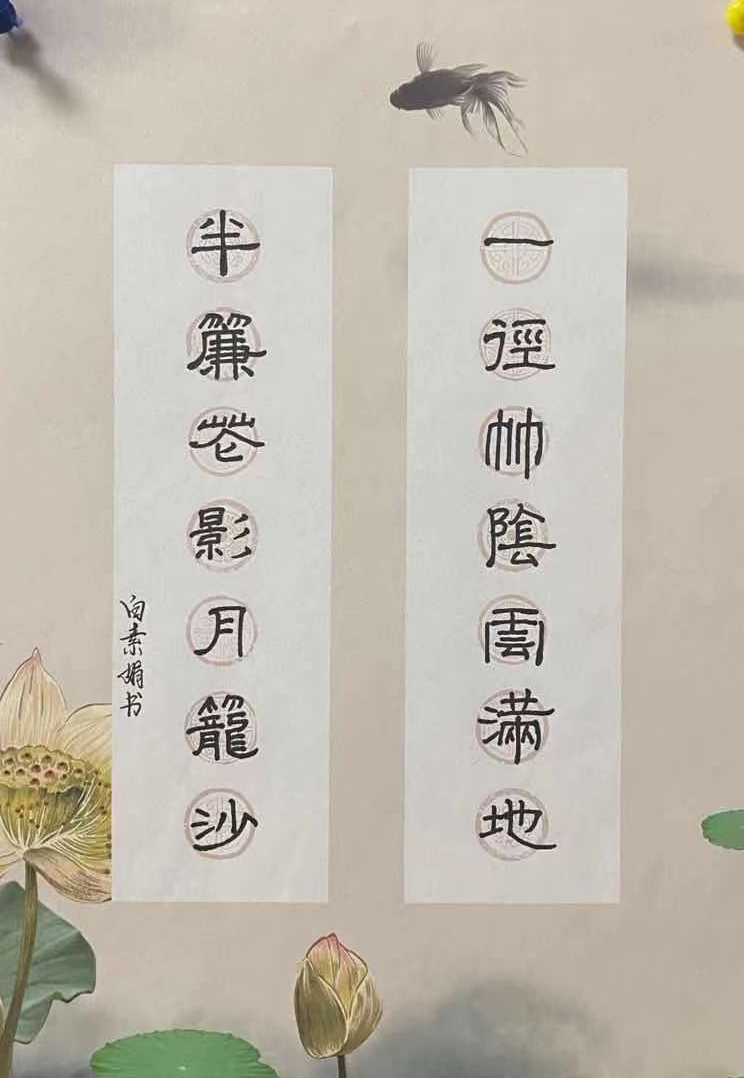 一徑竹陰雲滿地
半簾花影月籠沙
白素娟书